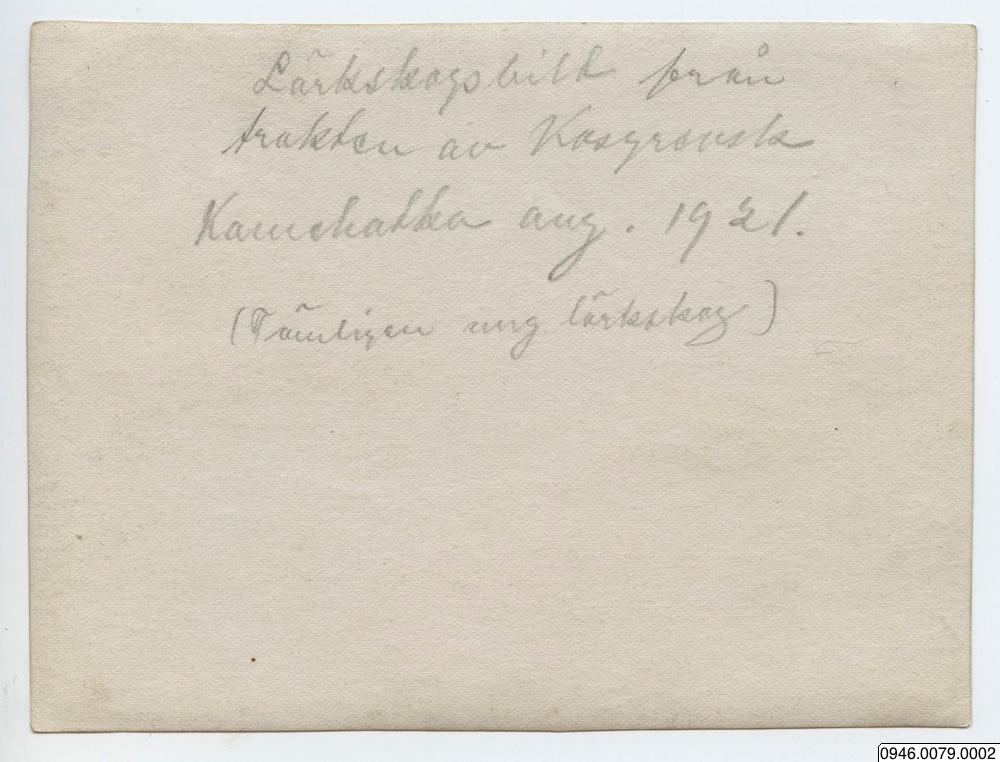 Lärkskogsbild från
trakten av Kosyrevsk
Kamchatka aug. 1921.
(Tämligen ung lärkskog)
0946.0079.0002